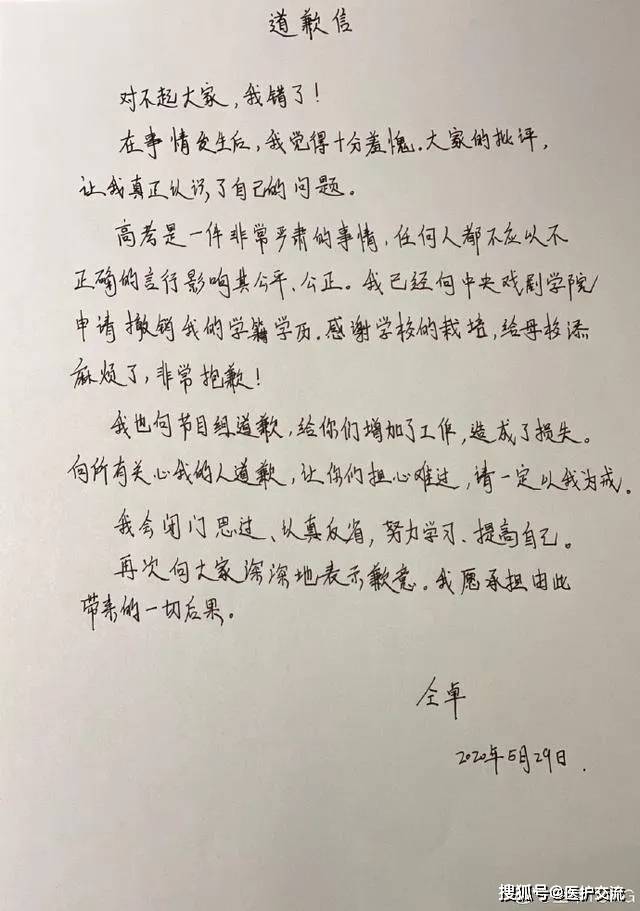 道歉信
对不起大家，我错了！
在事情发生后，我觉得十分羞愧。大家的批评，
让我真正认识了自己的问题。
高考是一件非常严肃的事情，任何人都不应以不
正确的言行影响其公平、公正。我已经向中央戏剧学院
申请撤销我的学籍学历。感谢学校的栽培，给母校添
麻烦了，非常抱歉！
我也向节目组道歉，给你们增加了工作，造成了损失。
向所有关心我的人道歉，让你们担心难过，请一定以我为戒。
我会闭门思过、认真反省，努力学习、提高自己。
再次向大家深深地表示歉意。我愿承担由此
带来的一切后果。
仝卓
2020年5月29日.
搜狐号@医护交流